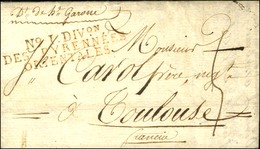 Dt. de hte Garonne
No. 1. DIVon
DES PYRENNÉES
ORIENTALES
Monsieur
Carol père, negt
à Toulouse
(france)